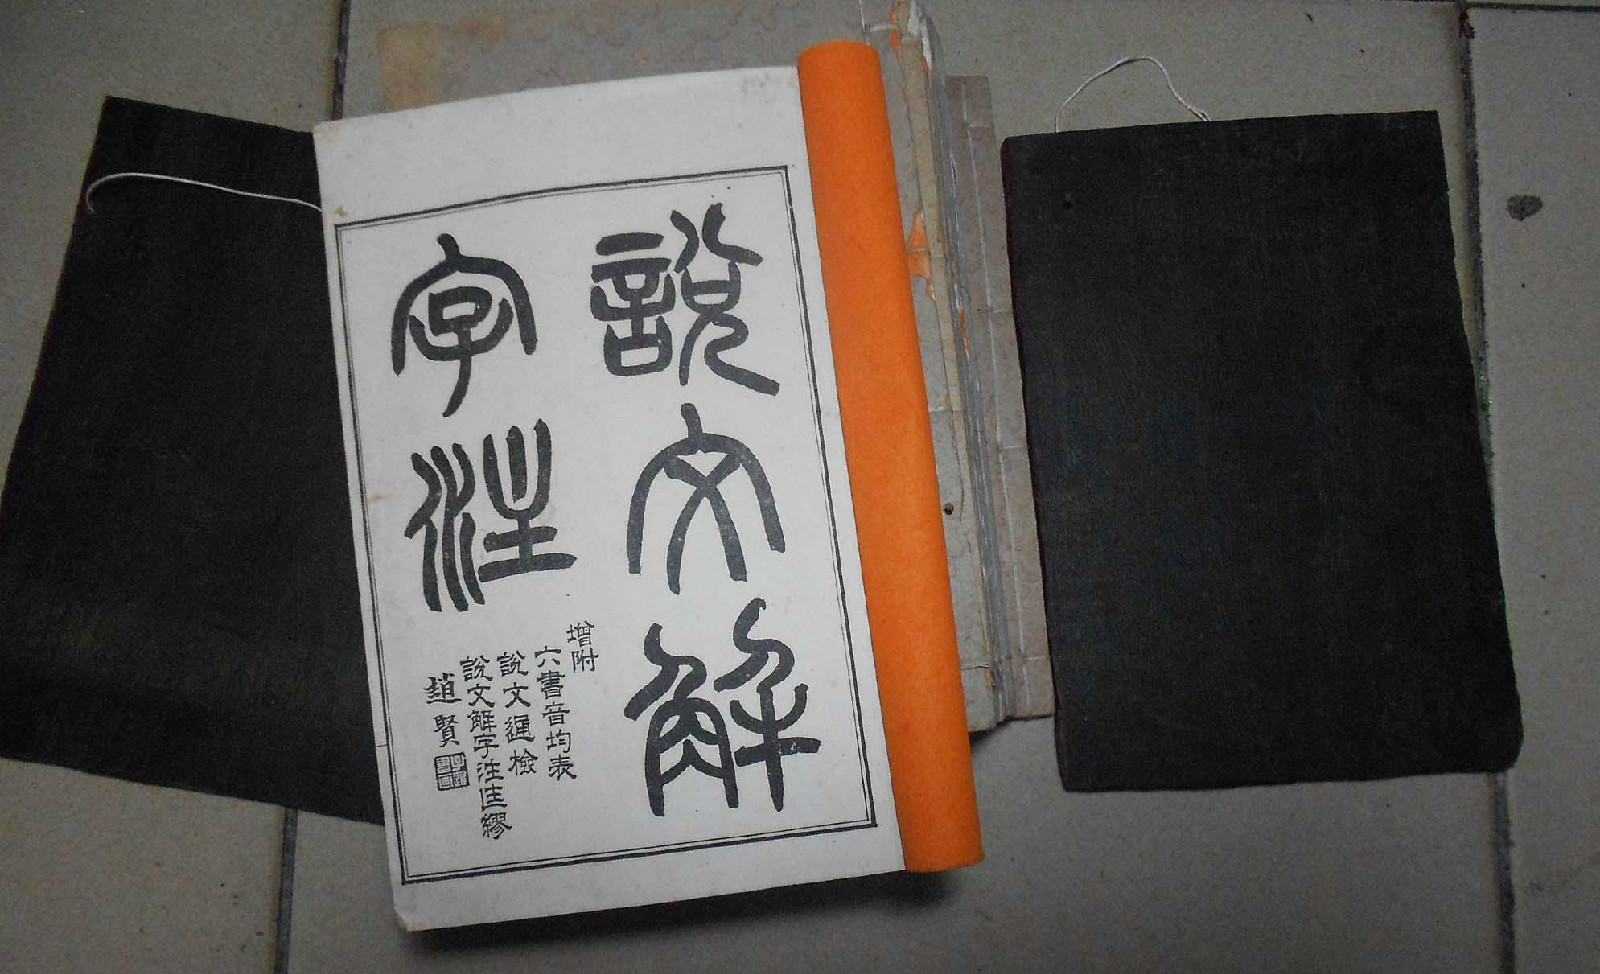 說文解
字注
增附
六書音均表
說文通檢
說文解字注匡繆
趙賢